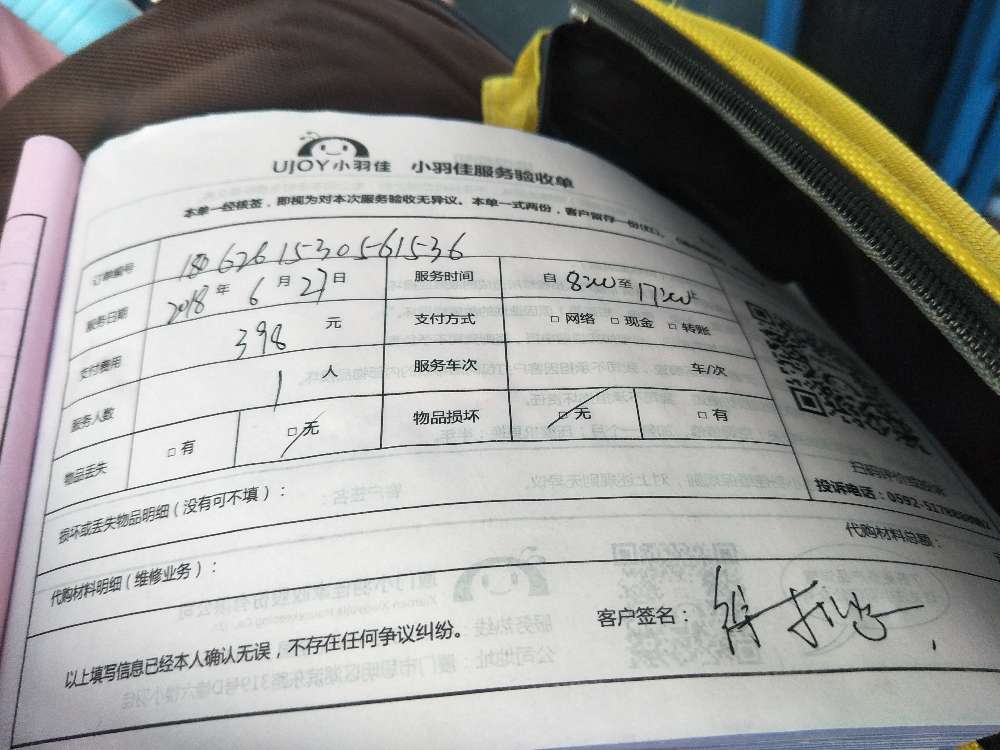 UJOY小羽佳 小羽佳服务验收单
本单一经核签，即视为对本次服务验收无异议。本单一式两份，客户留存一份
订单编号 1806261530561536
服务日期 2018 年 6 月 27 日 服务时间 自 8:00 至 17:00
支付费用 398 元 支付方式 □ 网络 □ 现金 □ 转账
服务人数 1 人 服务车次 车/次
物品丢失 □ 有 □ 无 物品损坏 □ 无 □ 有
损坏或丢失物品明细（没有可不填）：
投诉电话：0592-
代购材料明细（维修业务）： 代购材料总额：
以上填写信息已经本人确认无误，不存在任何争议纠纷。 客户签名：